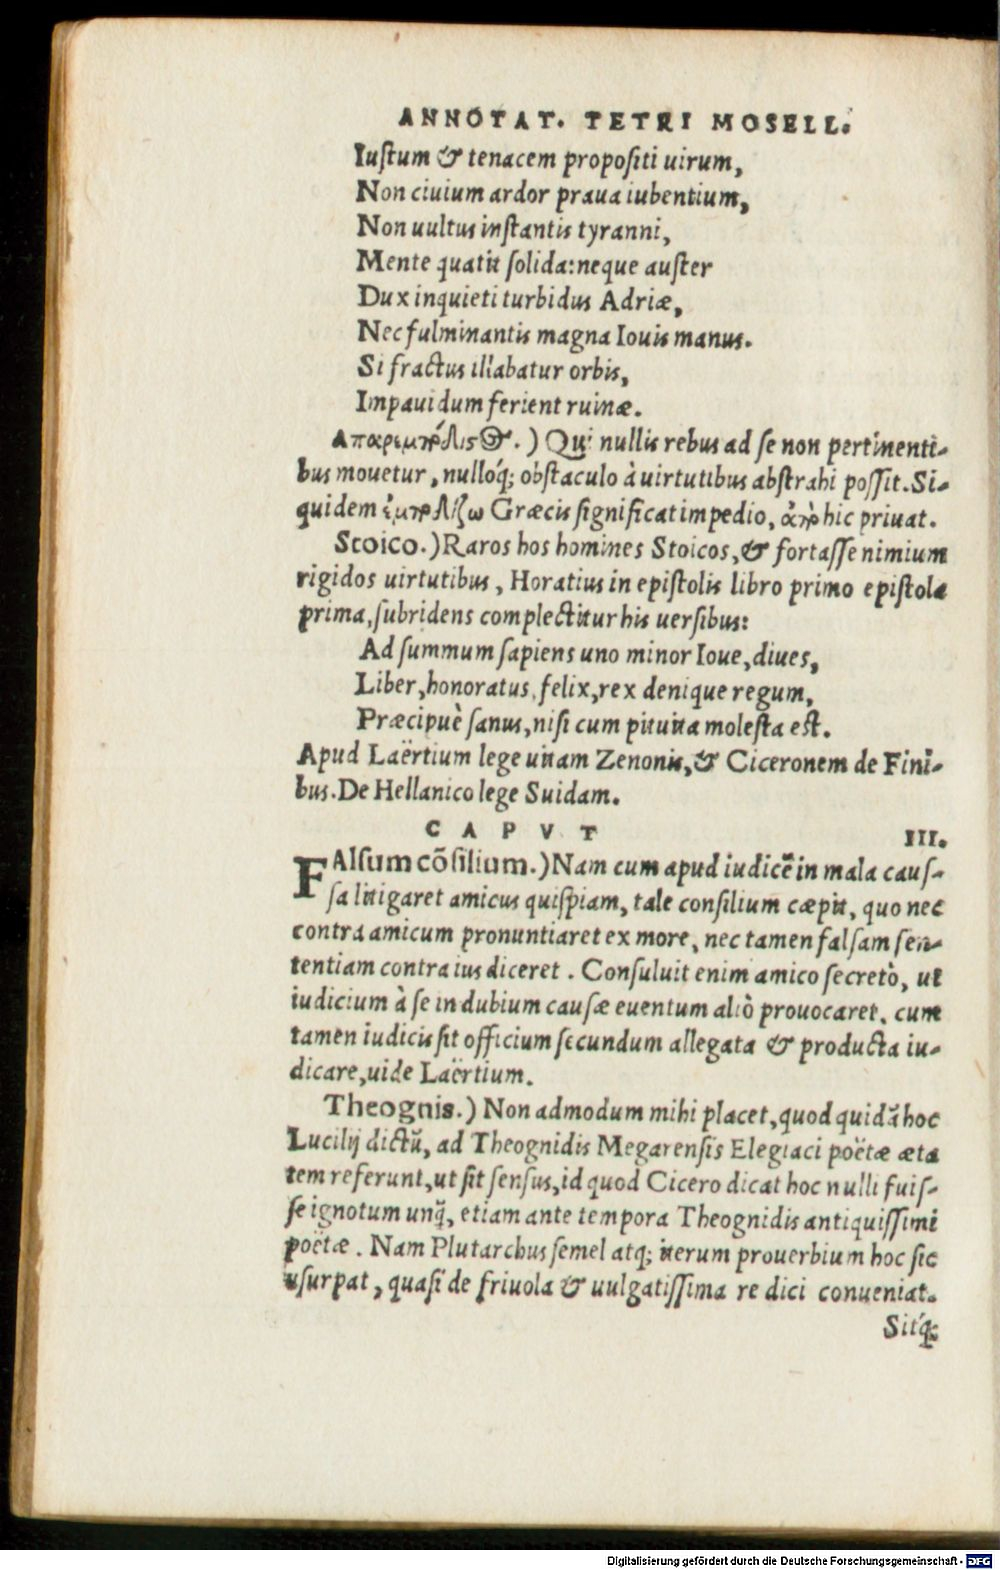 ANNOTAT. TETRI MOSELL.
Iustum & tenacem propositi uirum,
Non ciuium ardor praua iubentium,
Non uultus instantis tyranni,
Mente quatit solida: neque auster
Dux inquieti turbidus Adriæ,
Nec fulminantis magna Iouis manus.
Si fractus illabatur orbis,
Impauidum ferient ruinæ.
.) Qui nullis rebus ad se non pertinenti-
bus mouetur, nulloq́; obstaculo à uirtutibus abstrahi possit. Si-
quidem Græcis significat impedio, hic priuat.
Stoico.) Raros hos homines Stoicos, & fortasse nimium
rigidos uirtutibus, Horatius in epistolis libro primo epistola
prima, subridens complectitur his uersibus:
Ad summum sapiens uno minor Ioue, diues,
Liber, honoratus, felix, rex denique regum,
Præcipuè sanus, nisi cum pituita molesta est.
Apud Laërtium lege uitam Zenonis, & Ciceronem de Fini-
bus. De Hellanico lege Suidam.
CAPVT III.
FAlsum cōsilium.) Nam cum apud iudicē in mala caus-
sa litigaret amicus quispiam, tale consilium cæpit, quo nec
contra amicum pronuntiaret ex more, nec tamen falsam sen-
tentiam contra ius diceret. Consuluit enim amico secretò, ut
iudicium à se in dubium causæ euentum aliò prouocaret, cum
tamen iudicis sit officium secundum allegata & producta iu-
dicare, uide Laërtium.
Theognis.) Non admodum mihi placet, quod quidā hoc
Lucilij dictū, ad Theognidis Megarensis Elegiaci poëtæ æta
tem referunt, ut sit sensus, id quod Cicero dicat hoc nulli fuis-
se ignotum unq̃, etiam ante tempora Theognidis antiquissimi
poëtæ. Nam Plutarchus semel atq; iterum prouerbium hoc sic
usurpat, quasi de friuola & uulgatissima re dici conueniat.
Sitq́;
Digitalisierung gefördert durch die Deutsche Forschungsgemeinschaft - DFG